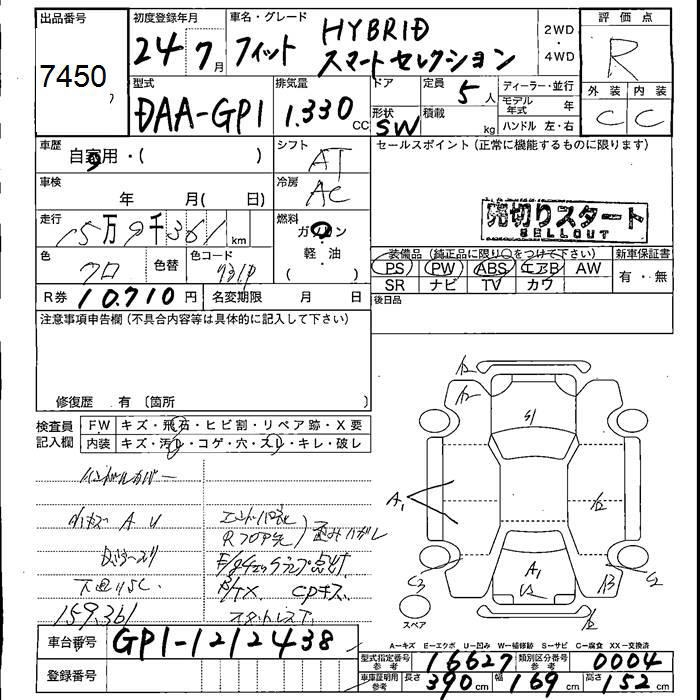 出品番号
7450
初度登録年月
24 7月
車名・グレード
フィット HYBRID
スマートセレクション
2WD
・
4WD
評価点
R
外装 内装
C C
型式
DAA-GP1
排気量
1.330 CC
ドア
形状
SW
定員
5人
積載
kg
ディーラー・並行
モデル年式 年
ハンドル 左・右
車歴
自家用・( )
シフト
AT
セールスポイント (正常に機能するものに限ります)
車検
年 月( 日)
冷房
AC
売切りスタート
SELLOUT
走行
15万9千361 km
燃料
ガソリン
軽・油
( )
色
クロ
色替
色コード
装備品 (純正品に限り○をつけて下さい)
新車保証書
PS PW ABS エアB AW
SR ナビ TV カワ
有・無
R券 10.710円
名変期限 月 日
後日品
注意事項申告欄 (不具合内容等は具体的に記入して下さい)
修復歴 有 〔箇所 〕
検査員
記入欄
FW キズ・飛石・ヒビ割・リペア跡・X要
内装 キズ・汚れ・コゲ・穴・スレ・キレ・破レ
ハンドルカバー
159.361
スタットレス
A1
S1
A1
U2
C3
スペア
A-キズ E-エクボ U-凹み W-補修跡 S-サビ C-腐食 XX-交換済
車台番号 GP1-1212438
登録番号
型式指定番号 参考 16627
類別区分番号 参考 0004
車庫証明用 参考 長さ 390cm 幅 169cm 高さ 152cm